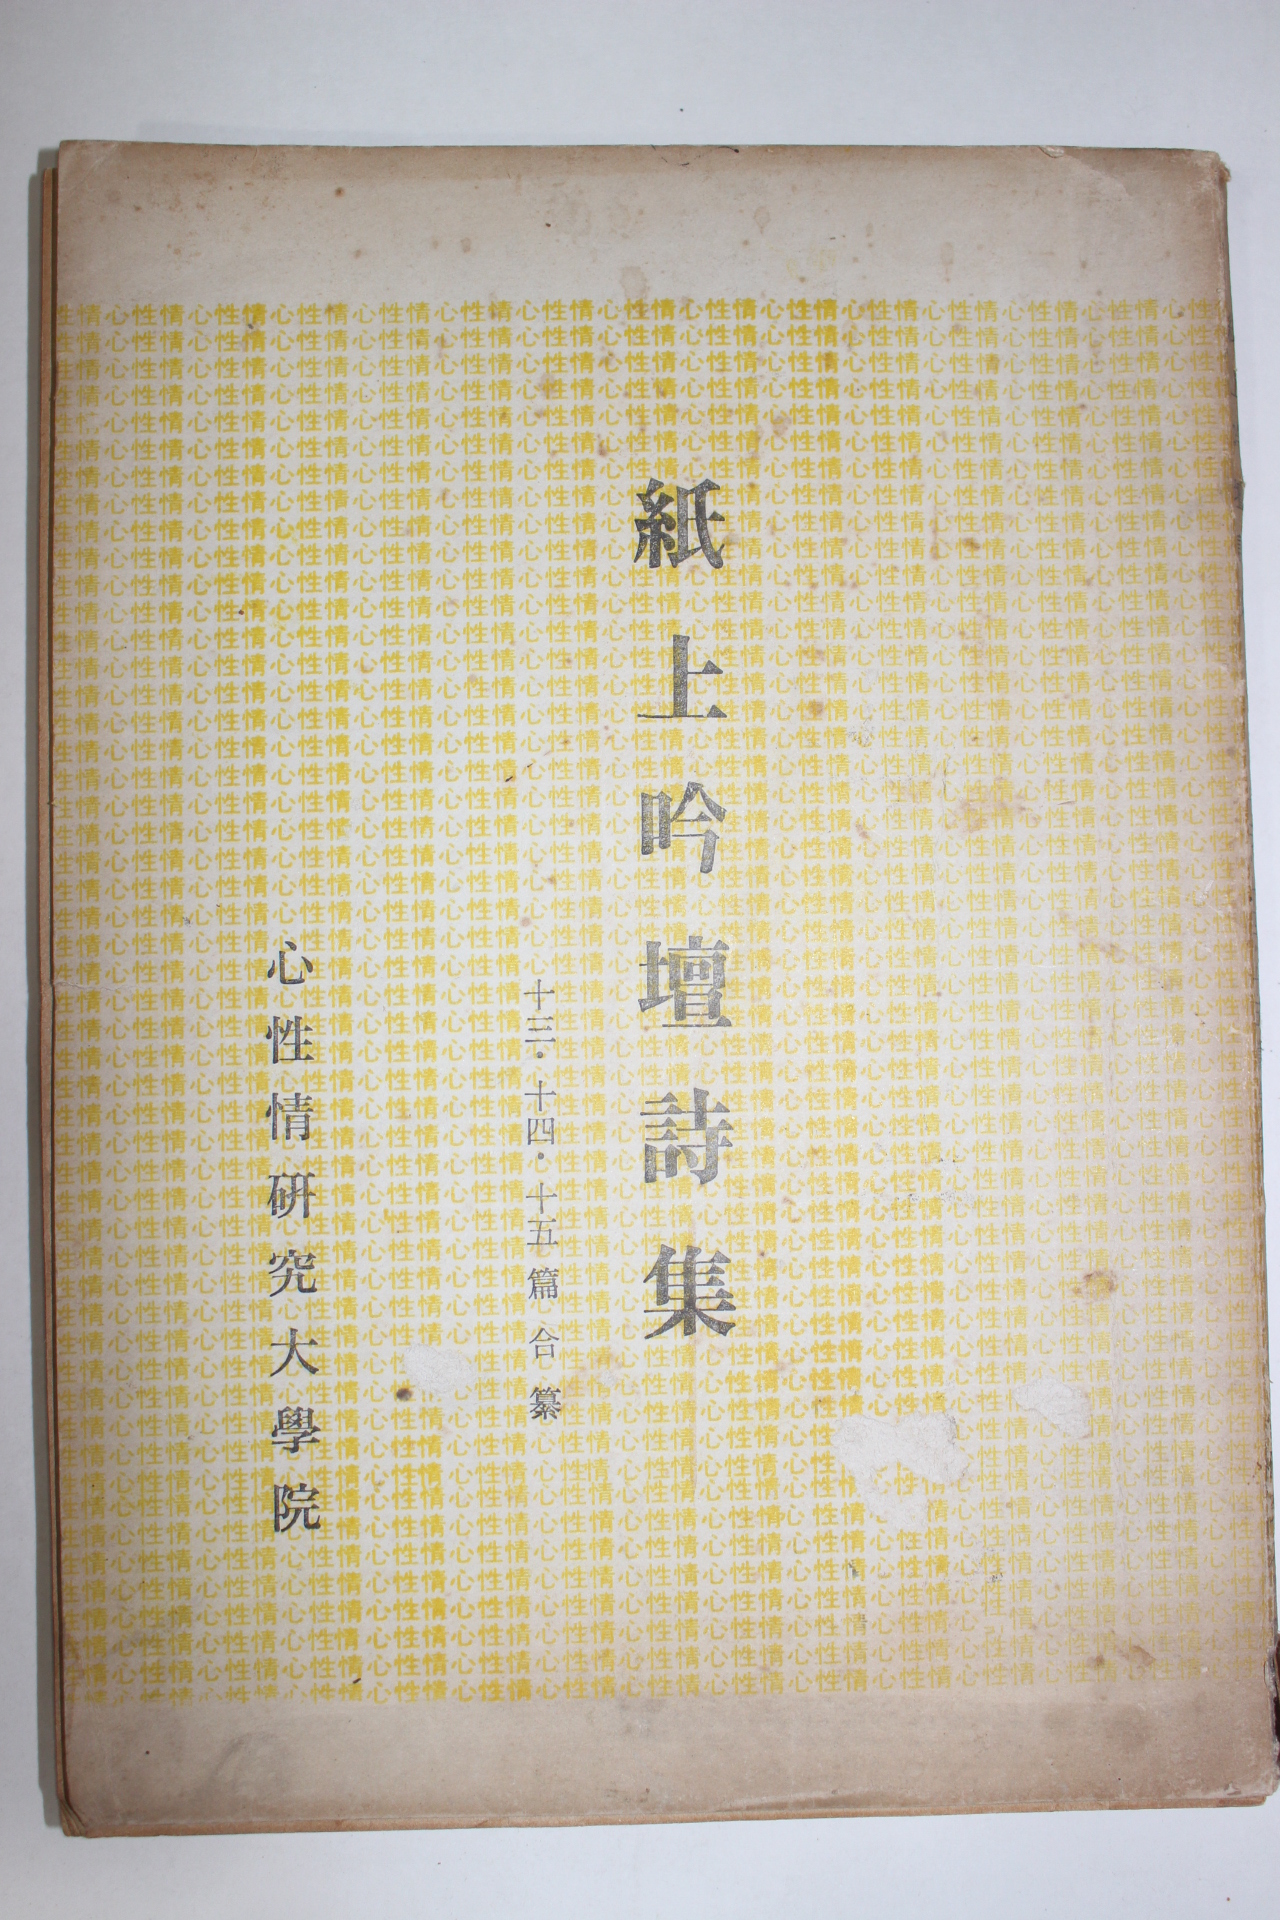 紙上吟壇詩集
十三·十四·十五篇 合纂
心性情研究大學院